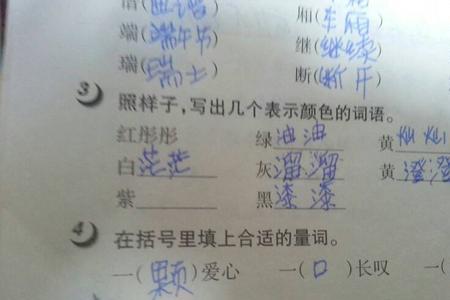 厢(车厢)
端(端午节) 继(继续)
瑞(瑞士) 断(断开)
3 照样子,写出几个表示颜色的词语。
红彤彤 绿油油 黄灿灿
白茫茫 灰溜溜 黄澄澄
紫 黑漆漆
4 在括号里填上合适的量词。
一(颗)爱心 一(口)长叹 一(